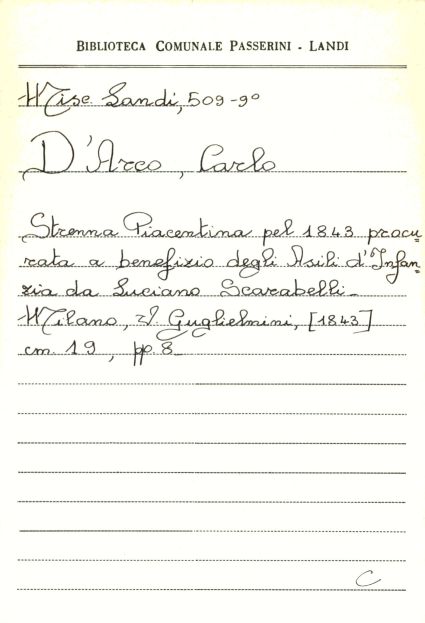 BIBLIOTECA COMUNALE PASSERINI - LANDI
Misc. Landi, 509-9º
D'Arco, Carlo
Strenna Piacentina pel 1843 procu=
rata a benefizio degli Asili d'Infan=
zia da Luciano Scarabelli_
Milano, V. Guglielmini, [1843]
cm. 19, pp. 8_
C